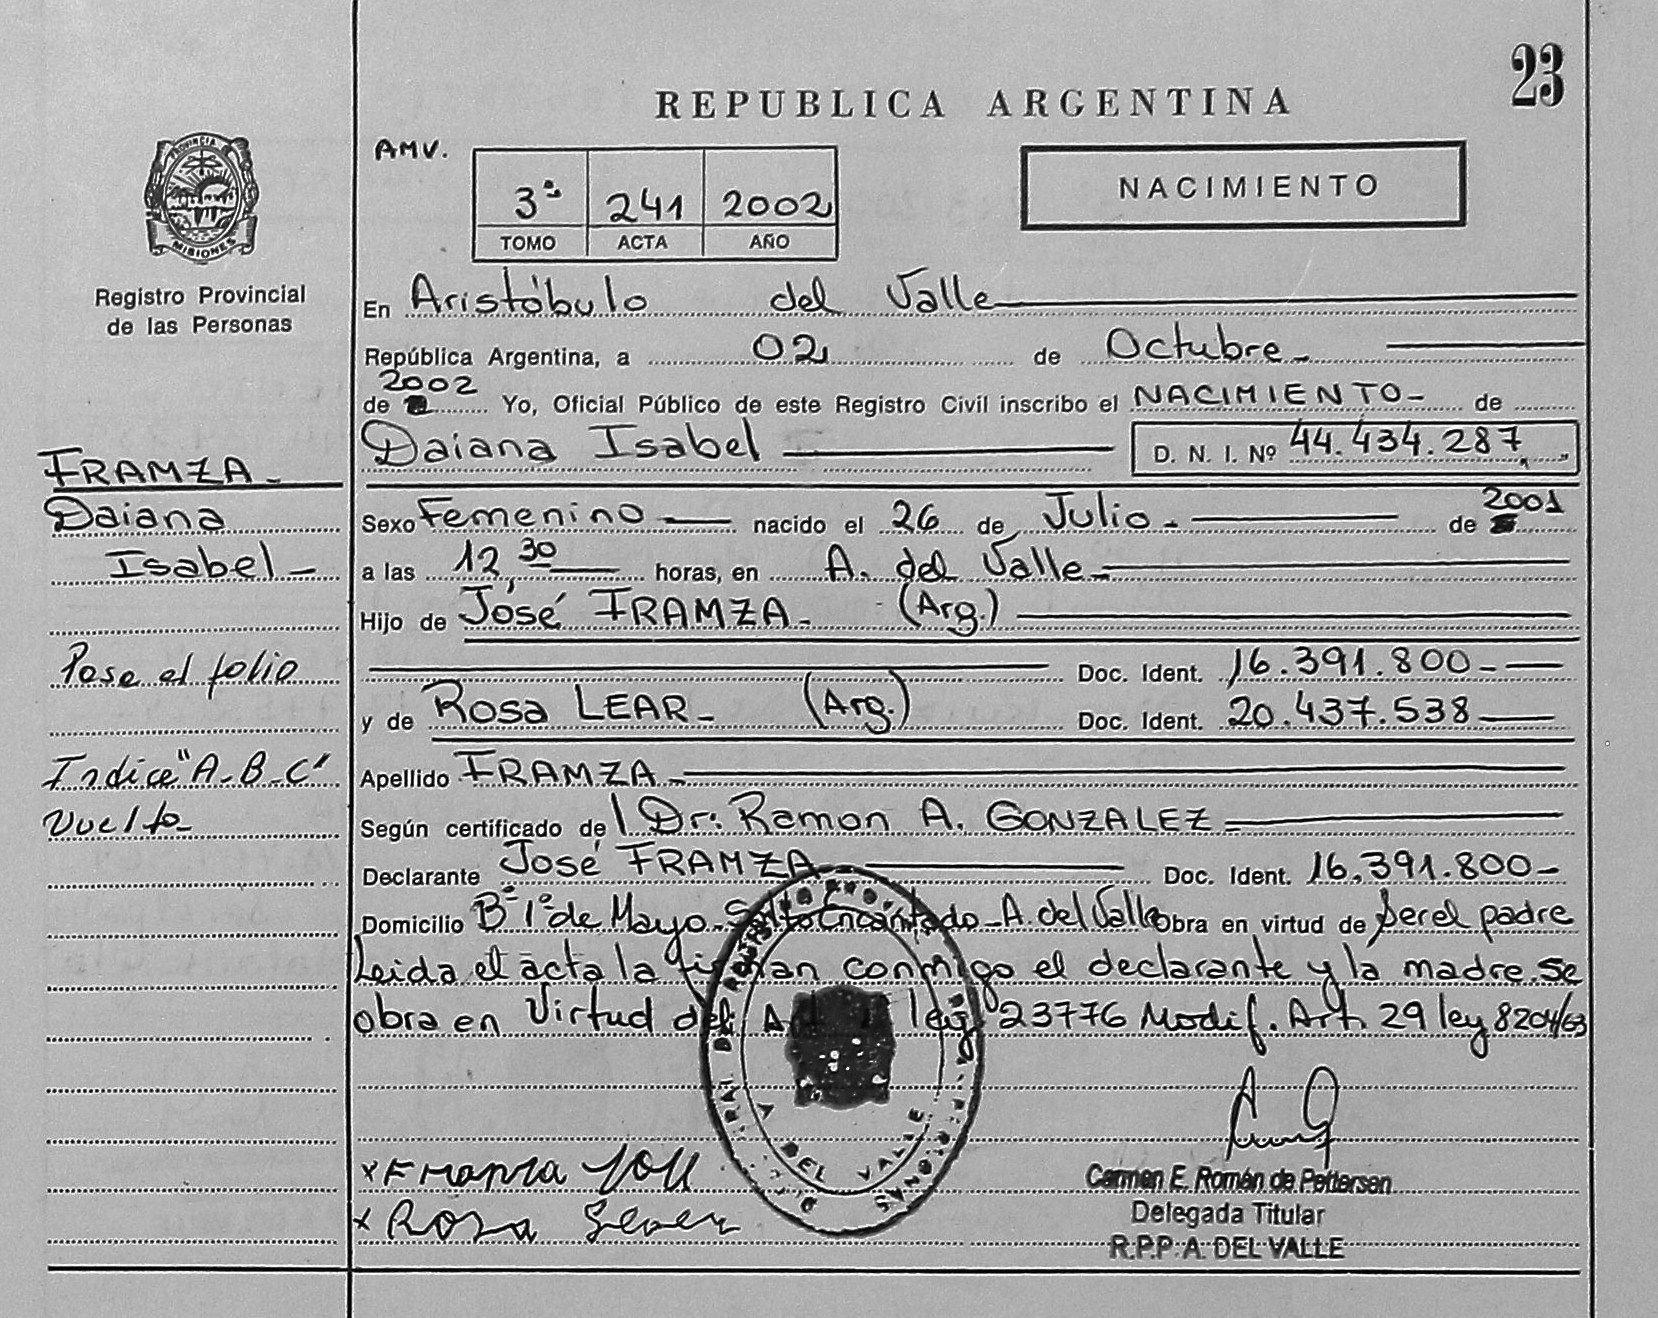 23
REPUBLICA ARGENTINA
AMV.
3ª 241 2002
TOMO ACTA AÑO
NACIMIENTO
PROVINCIA
MISIONES
Registro Provincial
de las Personas
En Aristóbulo del Valle
República Argentina, a 02 de Octubre
2002
de Yo, Oficial Público de este Registro Civil inscribo el NACIMIENTO de
Daiana Isabel D. N. I. Nº 44.434.287
FRAMZA
Daiana
Isabel
Sexo Femenino nacido el 26 de Julio de 2001
a las 12,30 horas, en A. del Valle
Hijo de José FRAMZA (Arg.)
Doc. Ident. 16.391.800
y de Rosa LEAR (Arg.) Doc. Ident. 20.437.538
Pase el folio
Indice "A-B-C"
Vuelto
Apellido FRAMZA
Según certificado de l Dr: Ramon A. GONZALEZ
Declarante José FRAMZA Doc. Ident. 16.391.800
Domicilio Bº 1º de Mayo Salto Encantado A. del Valle obra en virtud de ser el padre
Leida el acta la firman conmigo el declarante y la madre. Se
obra en Virtud del ley 23776 Modif. Art. 29 ley 8204/63
A DEL VALLE
x Framza José
x Rosa
Carmen E. Román de Pettersen
Delegada Titular
R.P.P. A. DEL VALLE